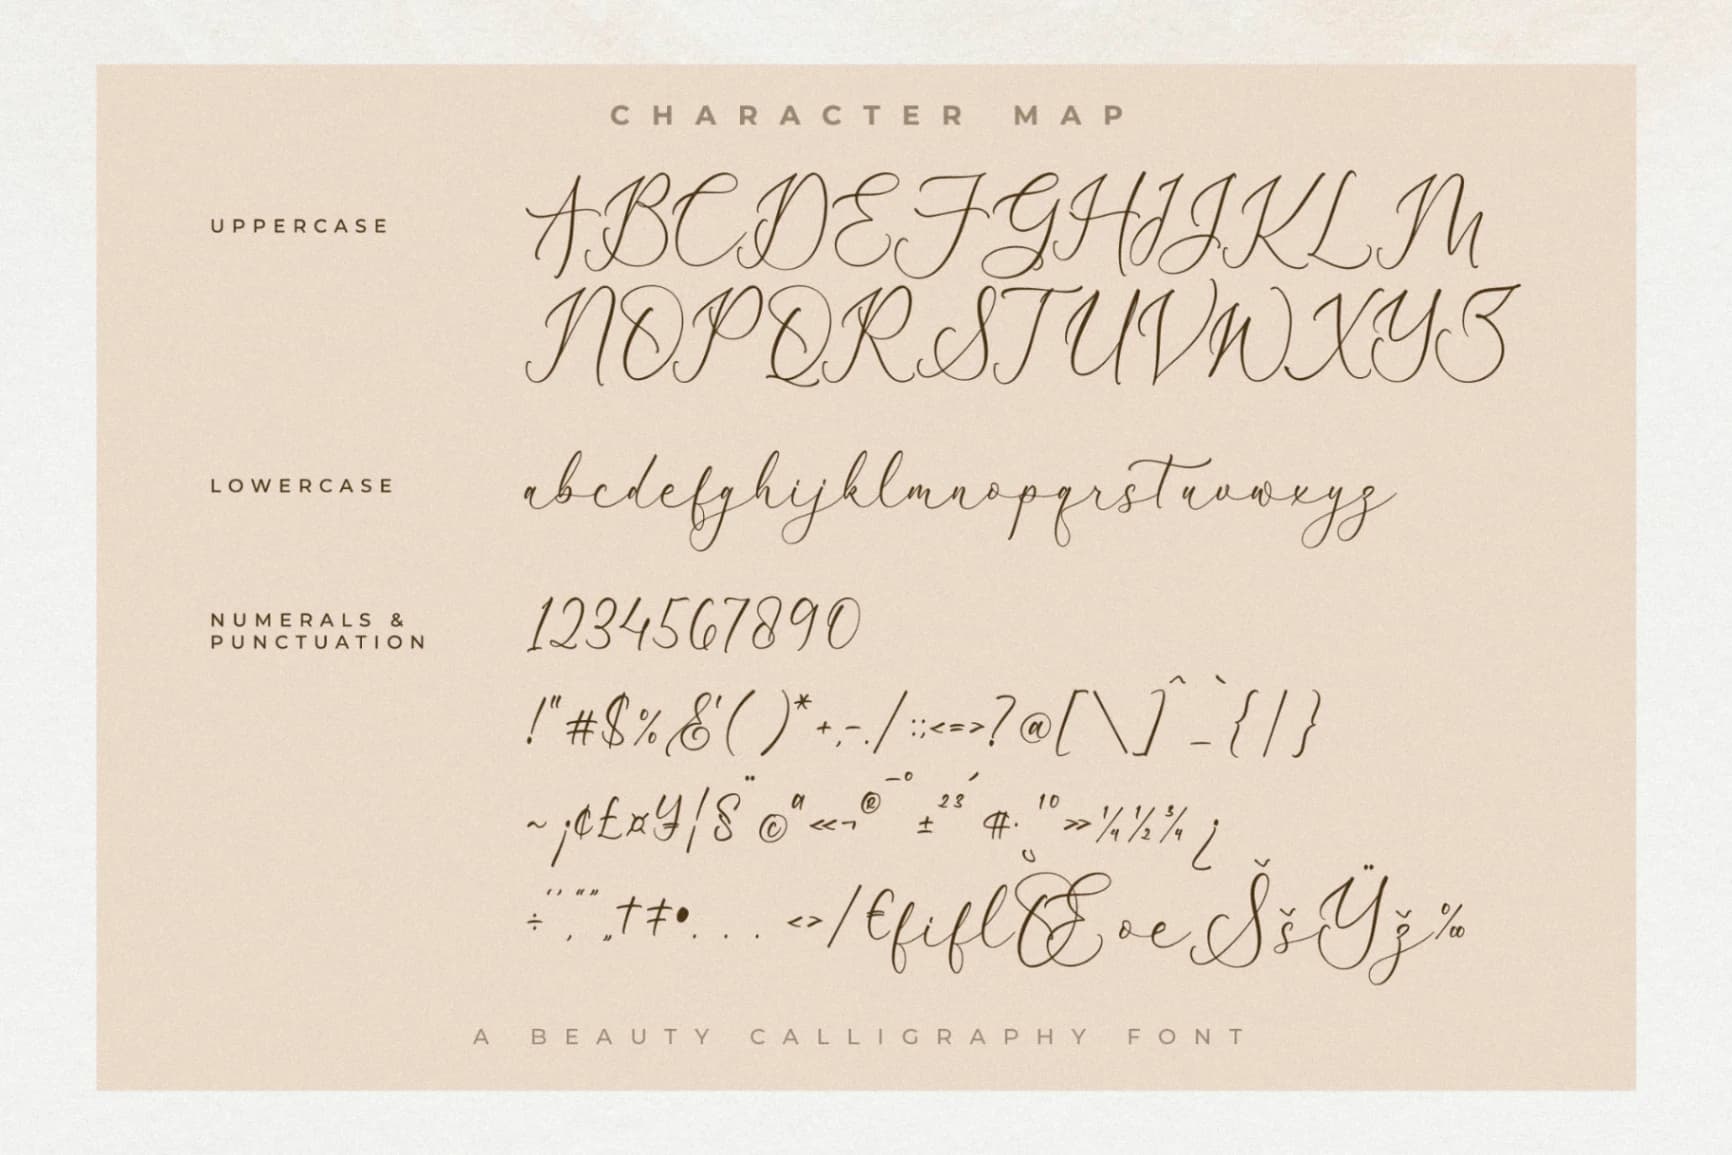 CHARACTER MAP
UPPERCASE
ABCDEFGHIJKLM
NOPQRSTUVWXYZ
LOWERCASE
abcdefghijklmnopqrstuvwxyz
NUMERALS &
PUNCTUATION
1234567890
!"#$%&'()*+,-./:;<=>?@[\]^_`{|}
~¡¢£¤¥¦§¨©ª«¬®¯°±²³´¶·¸¹º»¼½¾¿
÷‘’‚“”„†‡•...‹›/€fiflŒœŠšŸž‰
A BEAUTY CALLIGRAPHY FONT